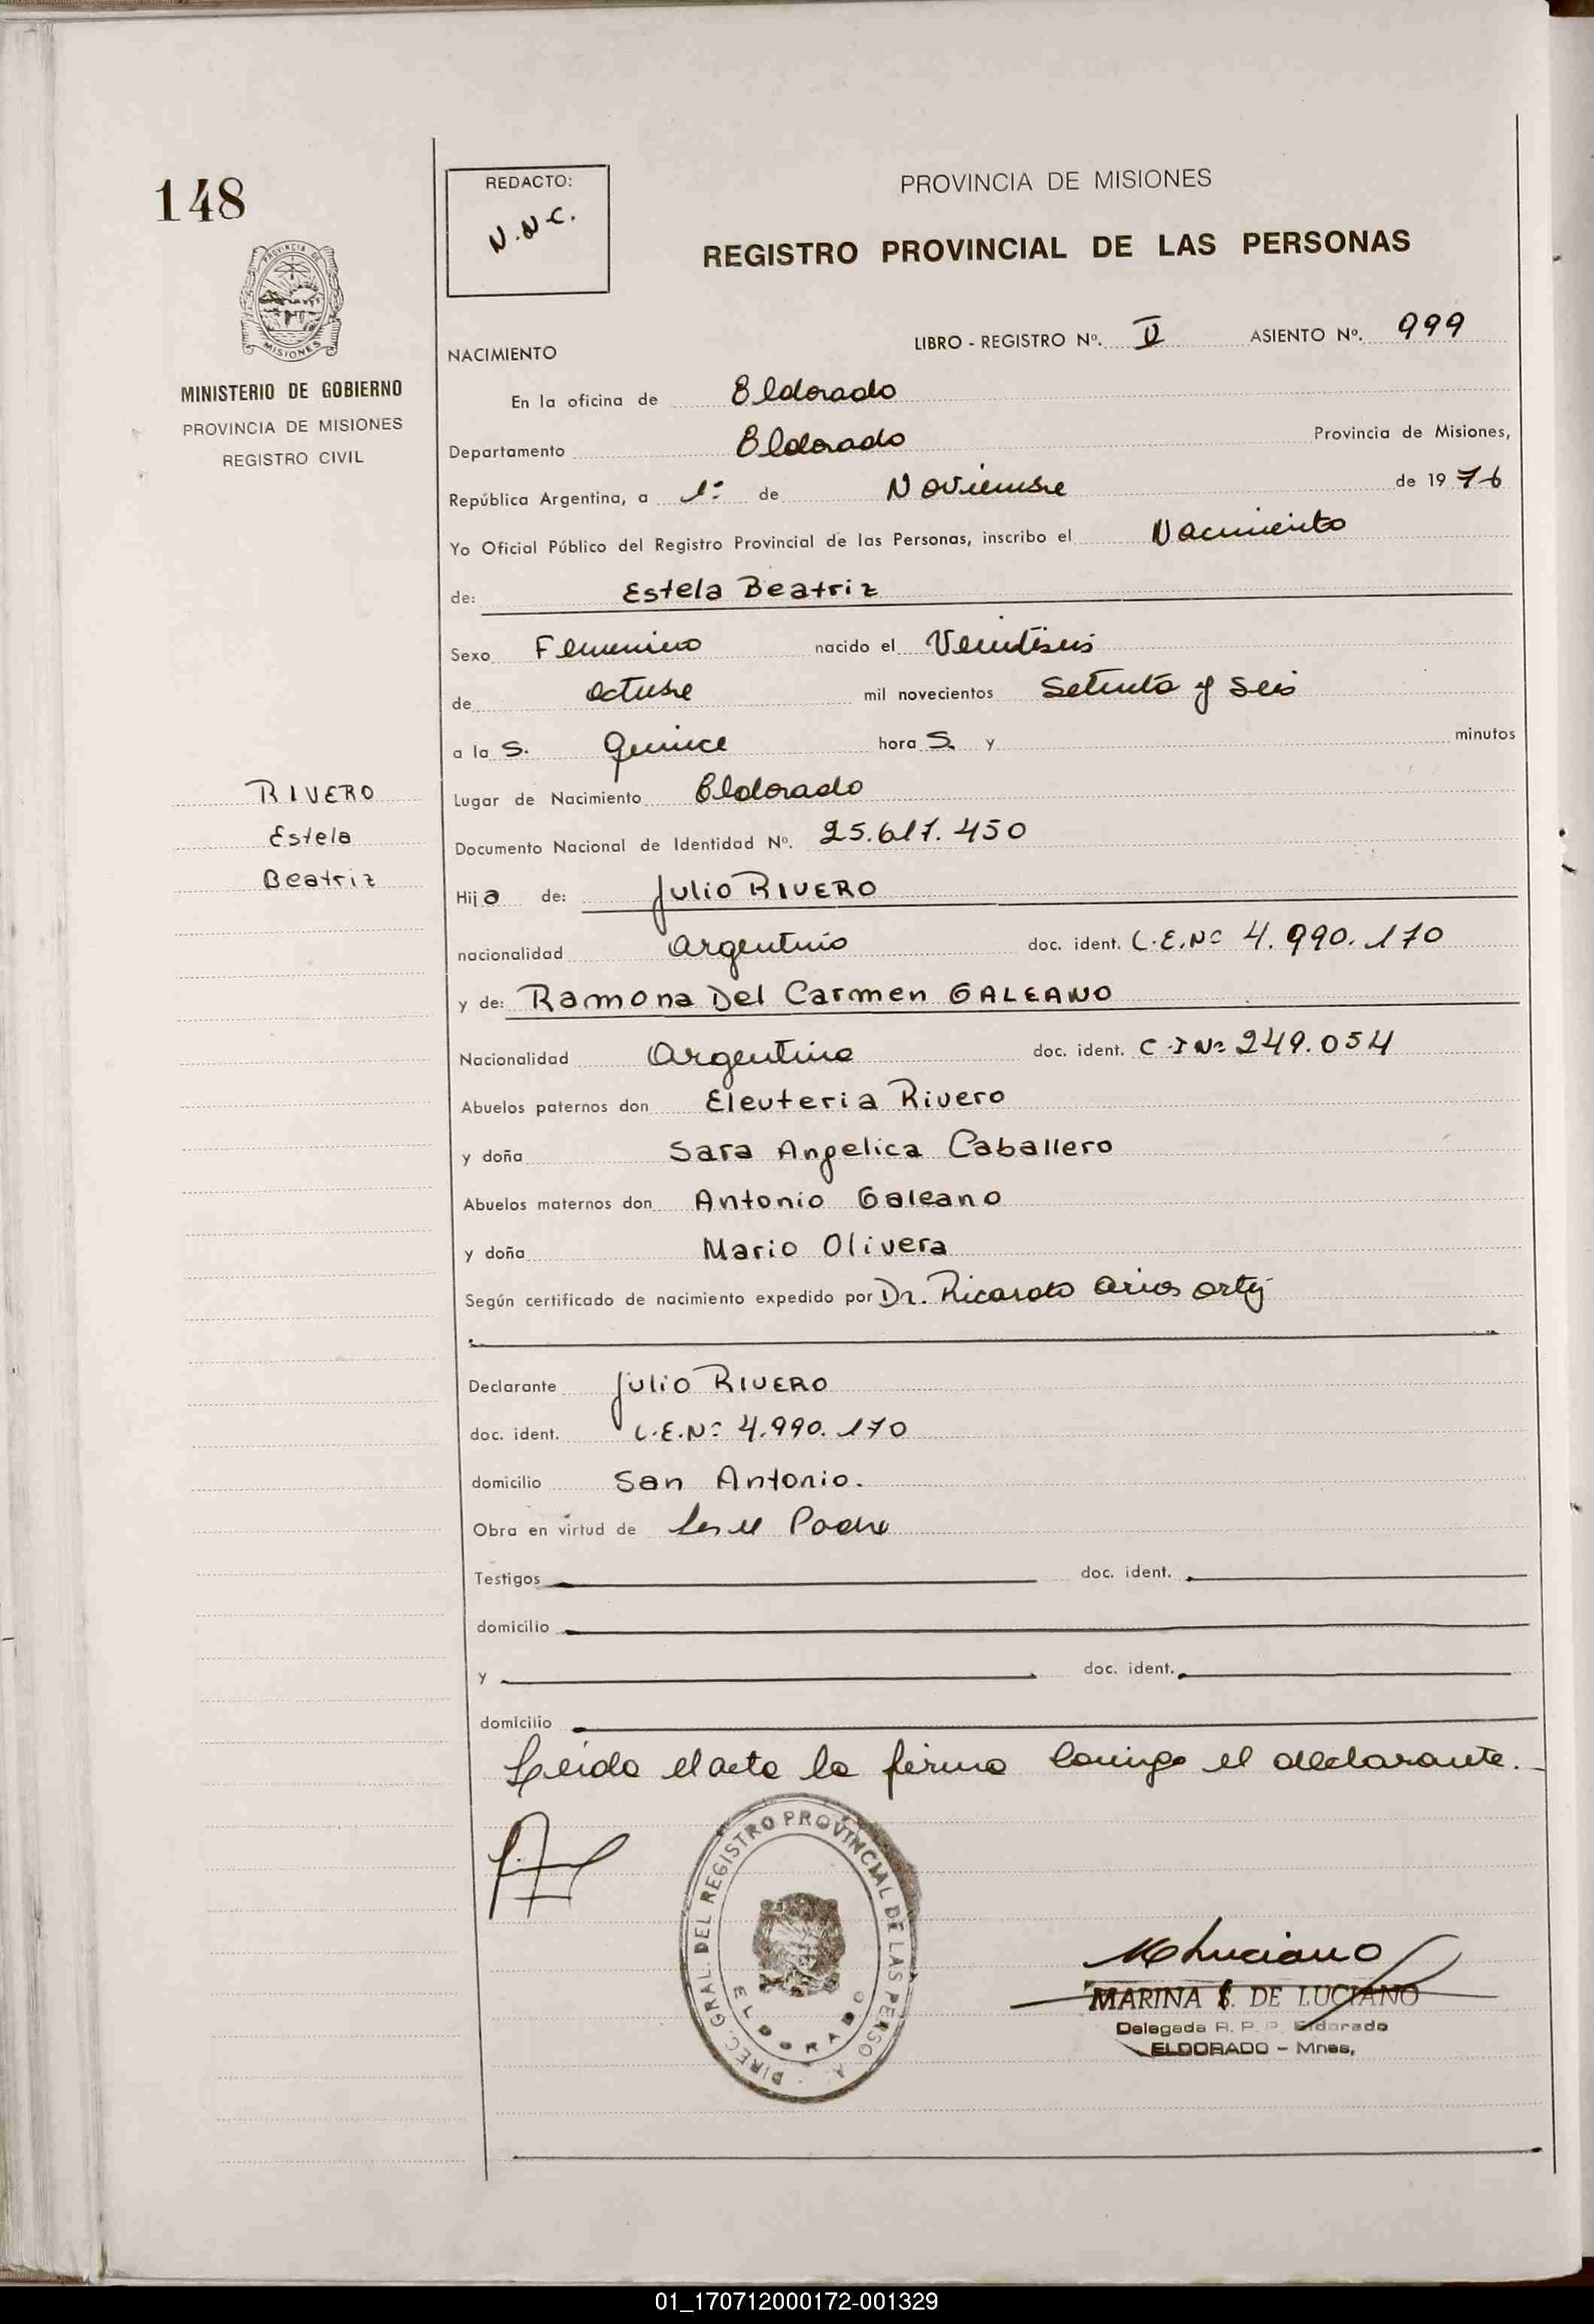 148
REDACTO:
N.N.C.
PROVINCIA DE MISIONES
REGISTRO PROVINCIAL DE LAS PERSONAS
PROVINCIA DE
MISIONES
MINISTERIO DE GOBIERNO
PROVINCIA DE MISIONES
REGISTRO CIVIL
LIBRO - REGISTRO Nº. II ASIENTO Nº. 999
NACIMIENTO
En la oficina de Eldorado
Departamento Eldorado Provincia de Misiones,
República Argentina, a 1º de Noviembre de 1976
Yo Oficial Público del Registro Provincial de las Personas, inscribo el Nacimiento
de: Estela Beatriz
Sexo Femenino nacido el Veintiseis
de octubre mil novecientos Setenta y Seis
a la S. quince hora S. y minutos
RIVERO
Estela
Beatriz
Lugar de Nacimiento Eldorado
Documento Nacional de Identidad Nº. 25.617.450
Hija de: Julio RIVERO
nacionalidad argentino doc. ident. L.E.Nº 4.990.170
y de: Ramona Del Carmen GALEANO
Nacionalidad Argentina doc. ident. C.I Nº 249.054
Abuelos paternos don Eleuteria Rivero
y doña Sara Angelica Caballero
Abuelos maternos don Antonio Galeano
y doña Mario Olivera
Según certificado de nacimiento expedido por Dr. Ricardo Arios
Declarante Julio RIVERO
doc. ident. L.E.Nº 4.990.170
domicilio San Antonio.
Obra en virtud de Ser el Padre
Testigos doc. ident.
domicilio
y doc. ident.
domicilio
Leída el acta la firma conmigo el declarante.
DIREC. GRAL. DEL REGISTRO PROVINCIAL DE LAS PERSO
ELDORADO
MLuciano
MARINA DE LUCIANO
Delegada R. P. P. Eldorado
ELDORADO - Mnes,
01_170712000172-001329